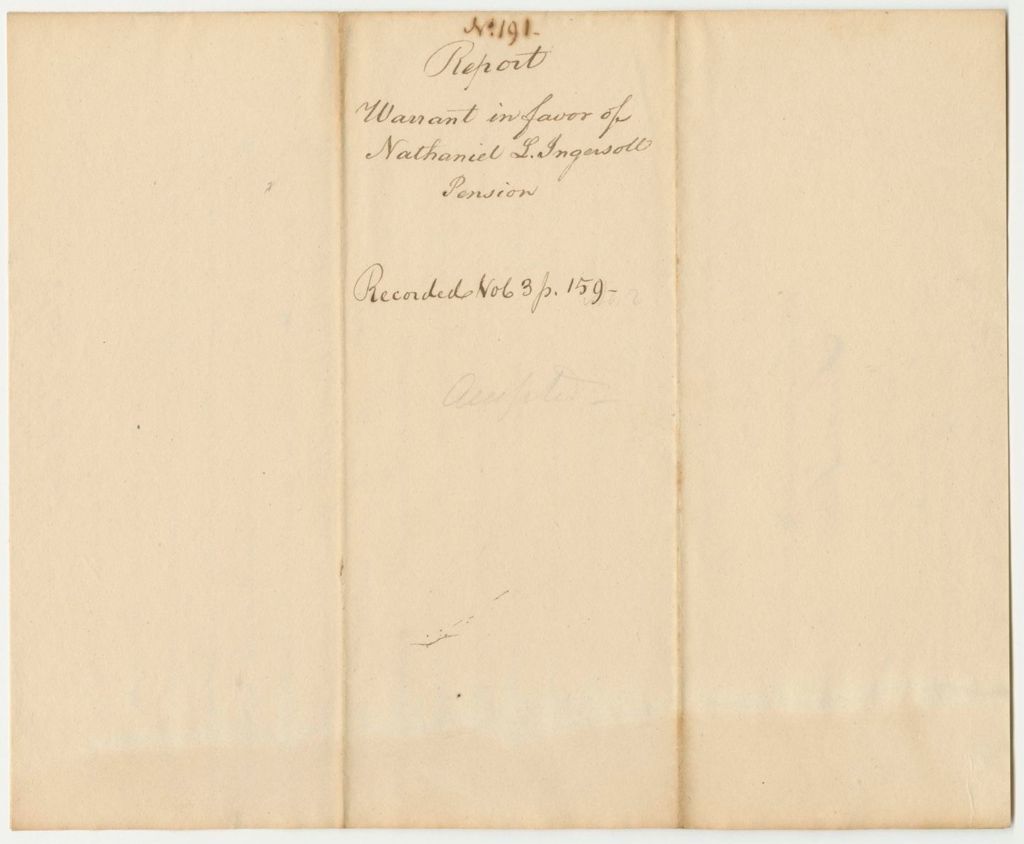 No. 191-
Report
Warrant in favor of
Nathaniel L. Ingersoll
Pension
Recorded Vol 3 p. 159-
Accepted-